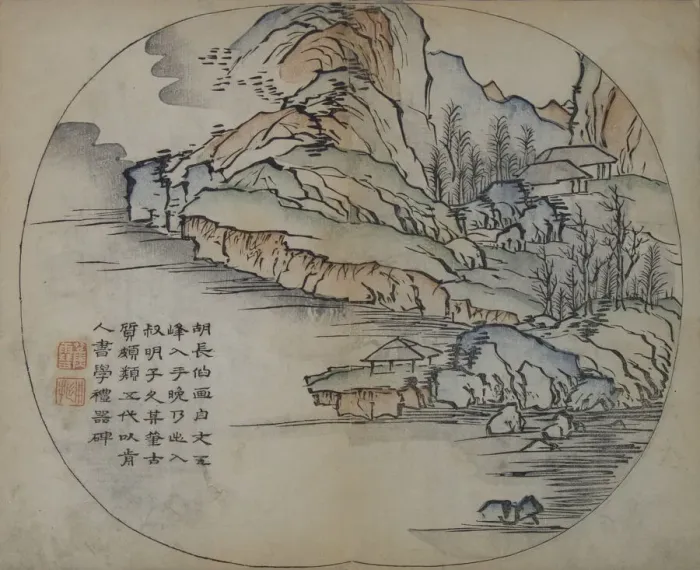 胡長伯画自文五
峰入手晚乃出入
叔明子久其筆古
質頗類五代以前
人書學禮器碑